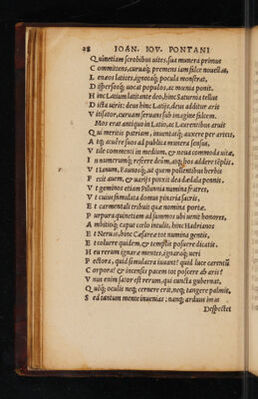 28 IOAN. IOV. PONTANI
Quinetiam scrobibus uites, sua munera primus
Committens, curuaq́; premens iam falce nouellas,
Lenæos latices, ignotaq́; pocula monstrat,
Disperseosq́; uocat populos, ac mœnia ponit.
Hinc Latium latitante deo, hinc Saturnia tellus
Dicta uiris: deus hinc Latijs, deus additur arit
Vitisator, curuam seruans sub imagine falcem.
Mos erat antiquus in Latio, ac Laurentibus aruit
Qui meritis patriam, inuentisq́; auxere per artes,
Atq́; acuere suos ad publica munera sensus,
Vtile commenti in medium, & noua commoda uitæ,
Innumerumq́; referre deûm, atq; hos addere templis.
Vt Ianum, Faunosq́;, ut quem pollentibus herbis
Fecit auem, & uarijs pinxit dea dædala pennis.
Vt geminos etiam Pilumnia numina fratres,
Vt cuius simulata domus pinaria sacris,
Et carmentali tribuit quæ nomina portæ.
Purpura quin etiam ad summos ubi uenit honores,
Ambitioq́; caput cœlo intulit, hinc Hadrianos
Et Neruas, hinc Cæsareæ tot numina gentis,
Et coluere quidem, & templis posuere dicatis.
Heu rerum ignaræ mentes, ignaraq́; ueri
Pectora, quid simulacra iuuant? quid luce carentum
Corpora? & incensis pacem tot poscere ab aris?
Vnus enim sator est rerum, qui cuncta gubernat,
Quẽq; oculis neq; cernere erit, neq; tangere palmis,
Sed tantum mente inuenias: nanq; ardua in se
Despectet